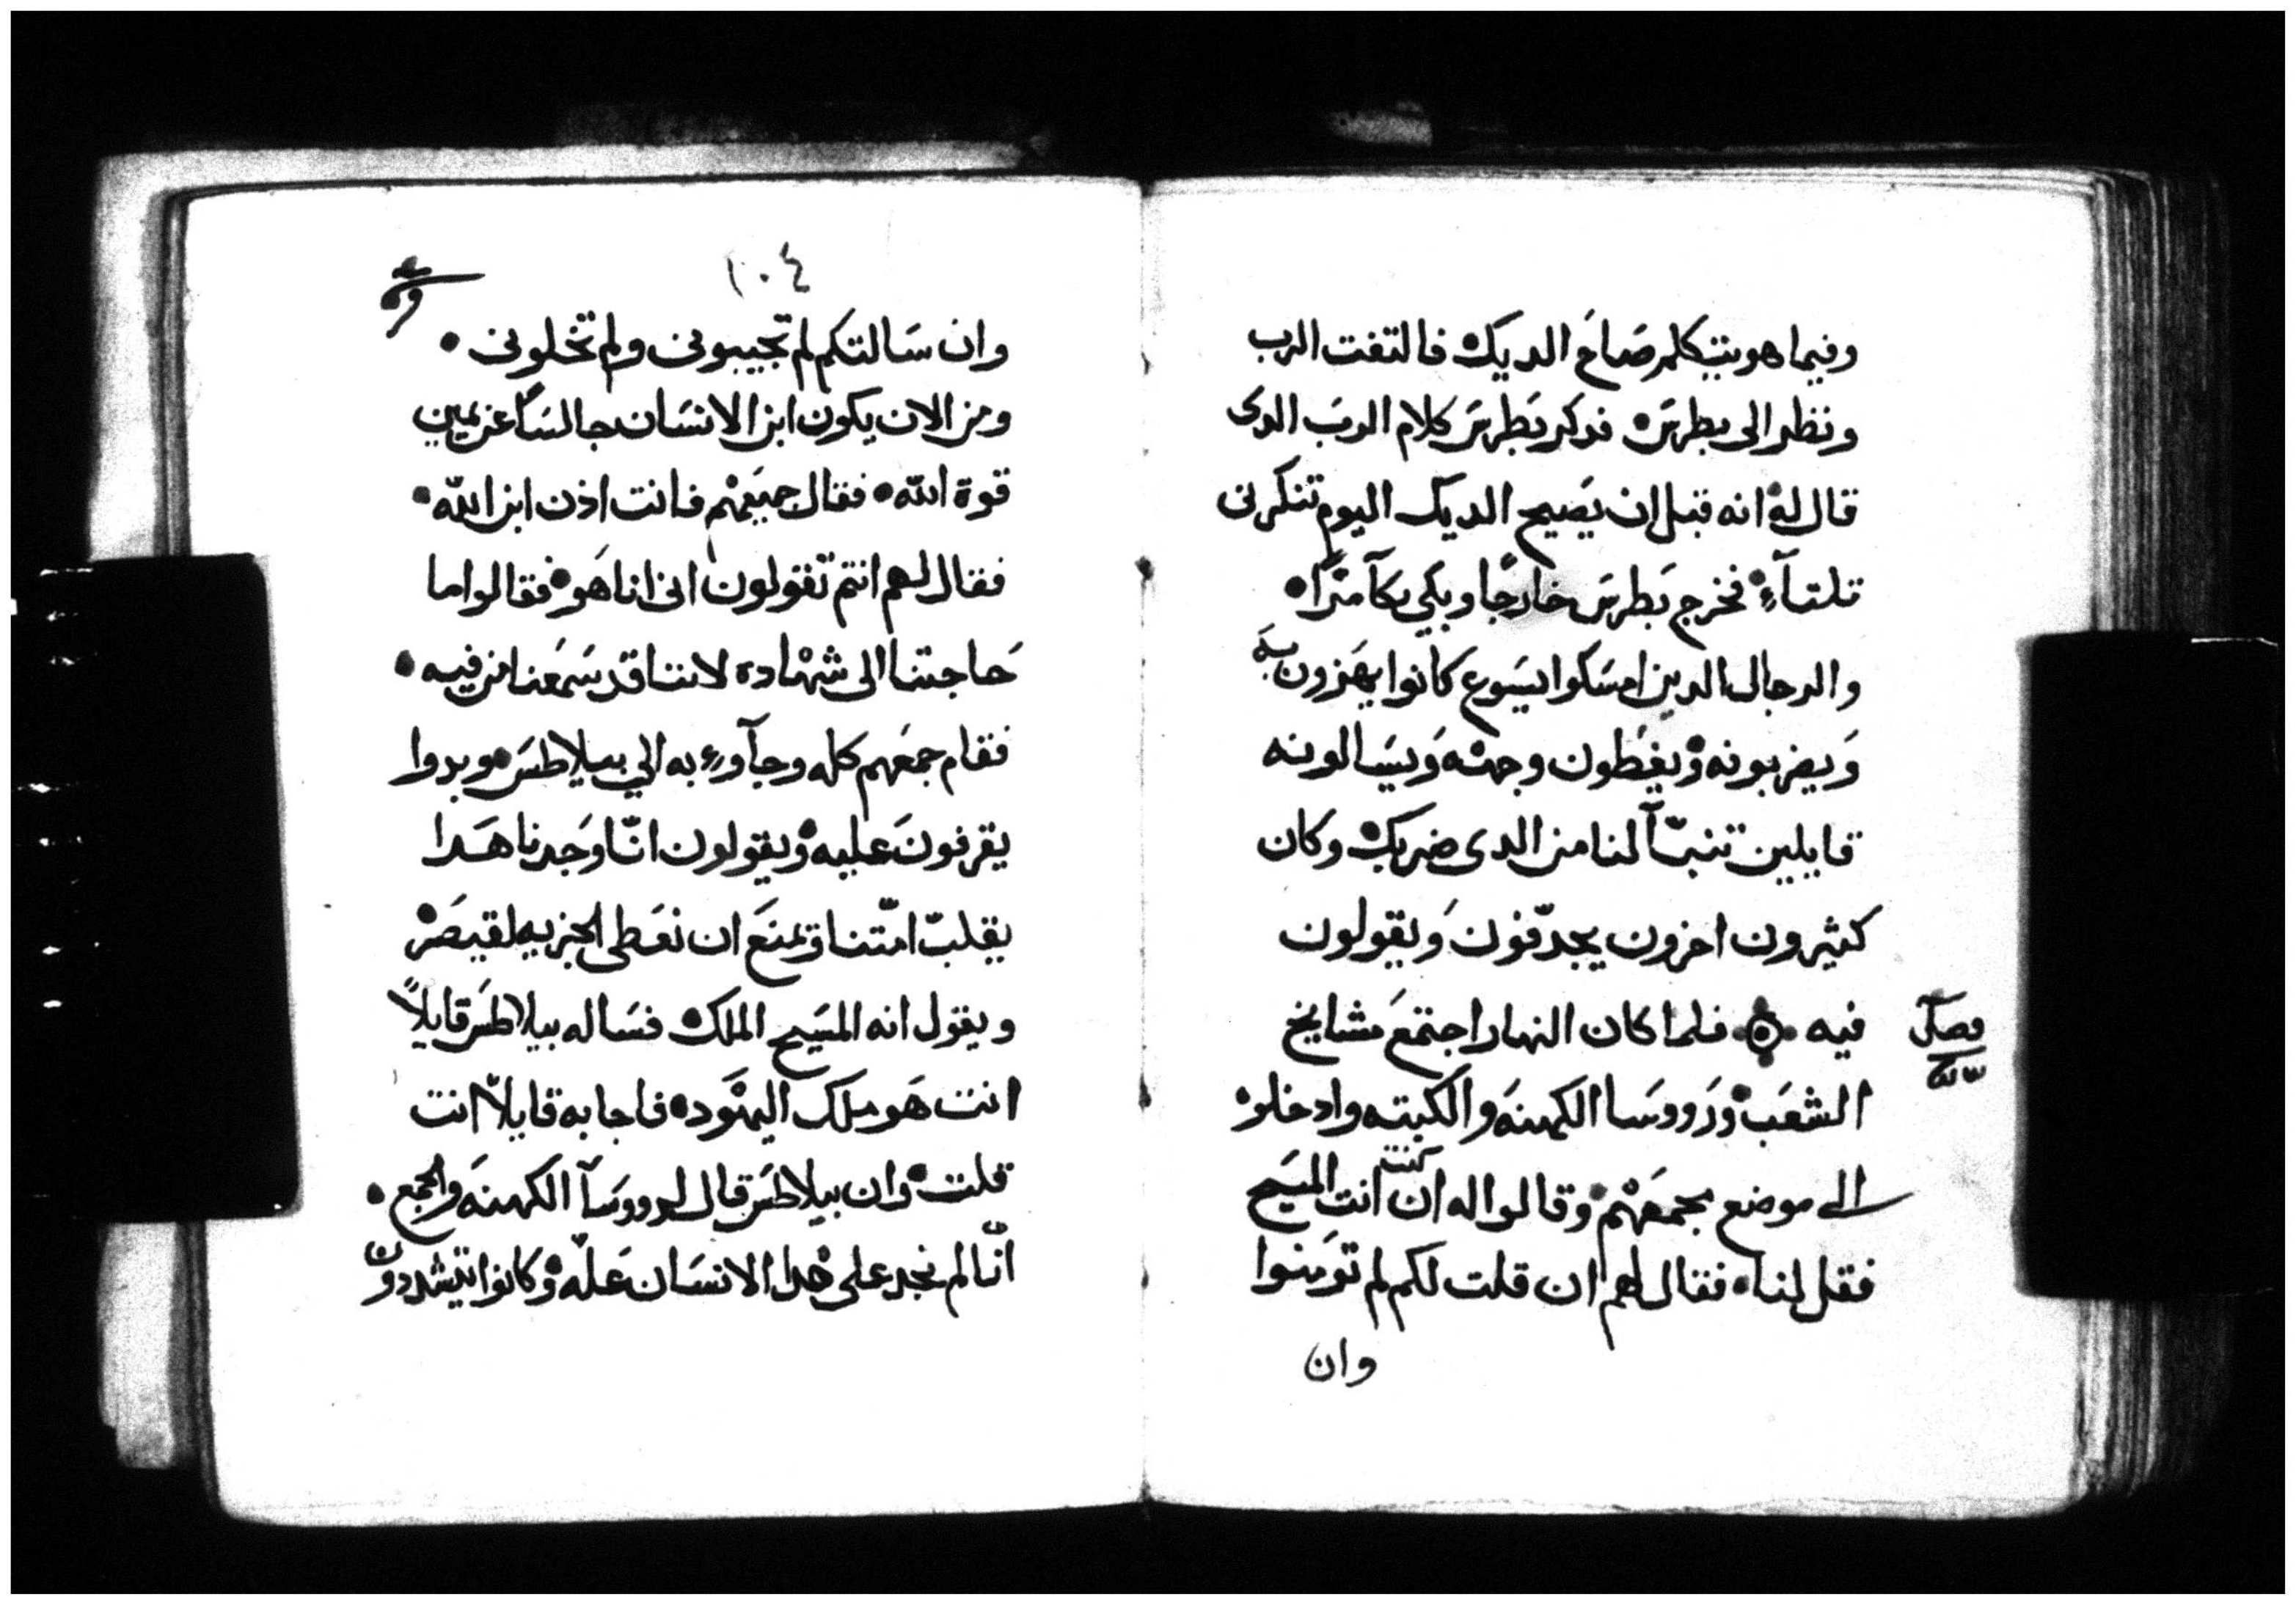 وفيما هو يتكلم صَاحَ الديك فالتفت الرب
ونظر الى بطرسَ فدكر بَطرسَ كلام الربَ الدى
قال لهْ انه قبل ان يَصيح الديك اليوم تنكرنى
تلتآءٍ فخرج بَطرسَ خارجًا وبكي بكآ مرًّا
والرجال الدين امسَكوا يسَوع كانوا يهَزون بهَ
وَيضربونه وْيغَطون وجهْه وَيسَالونه
قايلين تنبّآ لنا من الدى ضربك وكان
كثيرون اخرون يجدّفونَ وَيقولون
فيه ۞ فلما كان النهار اجتمعَ مشايخ
فصلَ
الشعَبْ وْرَووسَا الكهنهَ والكتبه وادخلوْ
الى موضع مجمعَهْم وقالوا له ان كنت انت المسَيح
فقل لنا فقال لهم ان قلت لكم لم توَمنوا
وان
١٠٤
وان سَالتكم لم تجيبونى ولم تخلونى
ومن الان يكون ابن الانسَان جالسًا عن يمين
قوة اللّه فقال جميَعهْم فانت اذن ابن اللّه
فقال لهم انتم تقولون انى انا هَو فقالوا ما
حَاجتنا الى شهْاده لاننا قد سَمعَنا من فيه
فقام جمعَهم كله وجآوءِ به الي بيلاطسَ وبدوا
يقرفونَ عليه وْيقولون انّا وَجدنا هَدا
يقلبّ امّتنا وْيمنَع ان نعَطى الجزيه لقيصَرْ
ويقول انه المسَيح الملك فسَاله بيلاطسَ قايلاً
انت هَو ملك اليهْود فاجابه قايلاً انت
قلت وان بيلاطسَ قال لرووسَآ الكهنهَ والجمع
انّا لم نجد على هْدا الانسَان عَلّه وْكانوا يتشددون